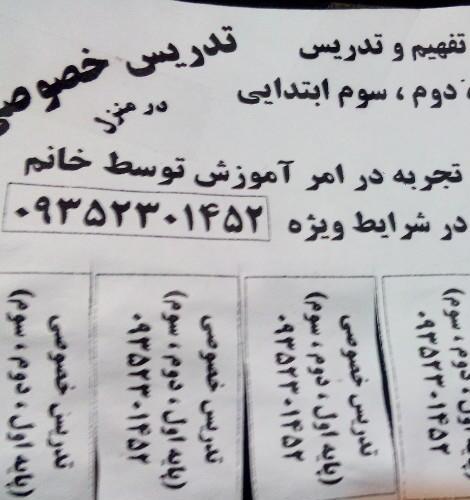 تدریس خصوصی
در منزل
تفهیم و تدریس
دوم ، سوم ابتدایی
تجربه در امر آموزش توسط خانم
در شرایط ویژه ۰۹۳۵۲۳۰۱۴۵۲
تدریس خصوصی
(پایه اول ، دوم ، سوم)
تدریس خصوصی
(پایه اول ، دوم ، سوم)
۰۹۳۵۲۳۰۱۴۵۲
تدریس خصوصی
(پایه اول ، دوم ، سوم)
۰۹۳۵۲۳۰۱۴۵۲
دوم ، سوم)
۰۹۳۵۲۳۰۱۴۵۲